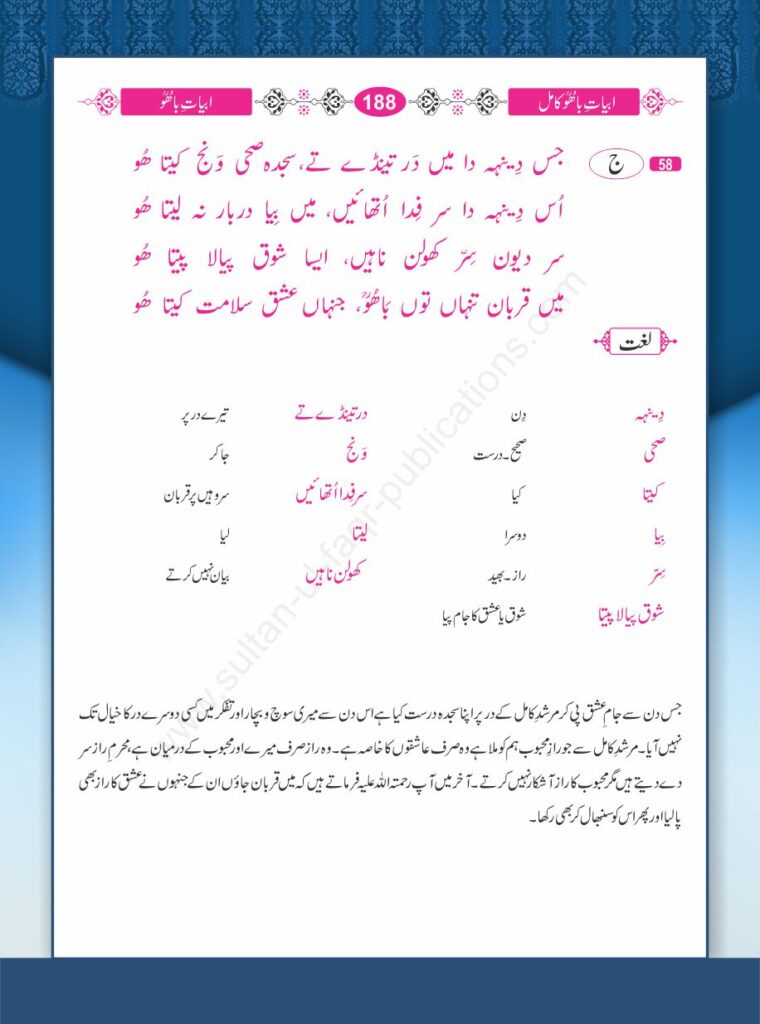 ابیاتِ باھُوؒ کامل 188 ابیاتِ باھُوؒ
58 ج جس دِینہہ دا میں دَر تینڈے تے، سجدہ صحی وَنج کیتا ھُو
اُس دِینہہ دا سر فِدا اُتھائیں، میں بِیا دربار نہ لیتا ھُو
سر دیون سِرّ کھولن ناہیں، ایسا شوق پیالا پیتا ھُو
میں قربان تنہاں توں بَاھُوؒ، جنہاں عشق سلامت کیتا ھُو
لغت
دِینہہ دِن در تینڈے تے تیرے در پر
صحی صحیح۔درست وَنج جا کر
کیتا کیا سر فِدا اُتھائیں سر وہیں پر قربان
بِیا دوسرا لیتا لیا
سِرّ راز۔بھید کھولن ناہیں بیان نہیں کرتے
شوق پیالا پیتا شوق یا عشق کا جام پیا
جس دن سے جامِ عشق پی کر مرشد کامل کے در پر اپنا سجدہ درست کیا ہے اس دن سے میری سوچ و بچار اور تفکر میں کسی دوسرے در کا خیال تک
نہیں آیا۔ مرشد کامل سے جو رازِ محبوب ہم کو ملا ہے وہ صرف عاشقوں کا خاصہ ہے۔ وہ راز صرف میرے اور محبوب کے درمیان ہے، محرمِ راز سر
دے دیتے ہیں مگر محبوب کا راز آشکار نہیں کرتے۔ آخر میں آپ رحمتہ اللہ علیہ فرماتے ہیں کہ میں قربان جاؤں ان کے جنہوں نے عشق کا راز بھی
پا لیا اور پھر اس کو سنبھال کر بھی رکھا۔
www.sultan-ul-faqr-publications.com